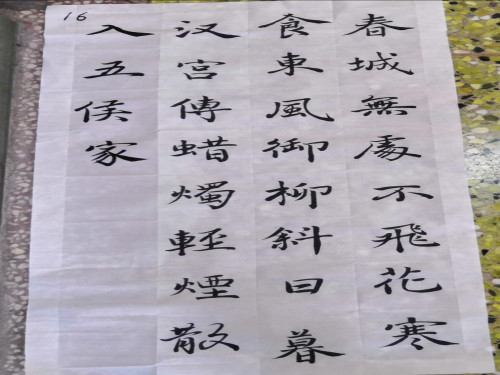 春城無處不飛花寒
食東風御柳斜日暮
汉宮傳蜡燭輕煙散
入五侯家
16